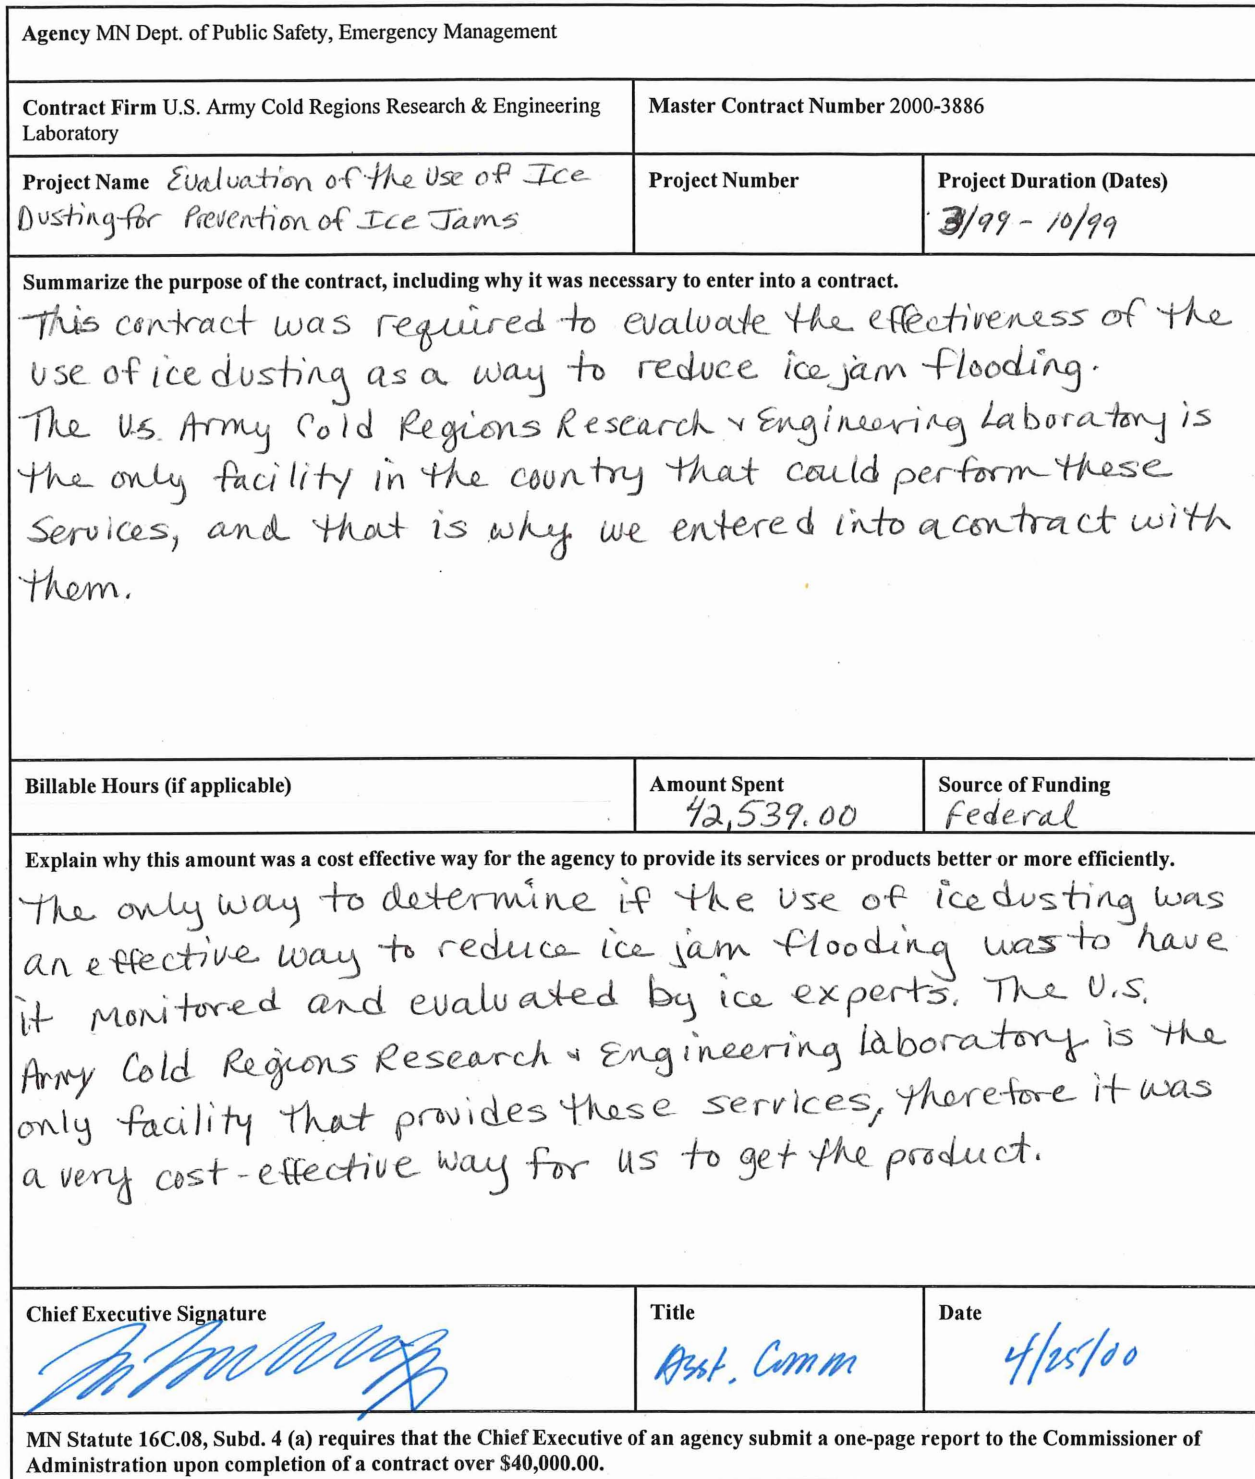 Agency MN Dept. of Public Safety, Emergency Management
Contract Firm U.S. Army Cold Regions Research & Engineering
Laboratory
Master Contract Number 2000-3886
Project Name Evaluation of the Use of Ice
Dusting for Prevention of Ice Jams
Project Number
Project Duration (Dates)
3/99 - 10/99
Summarize the purpose of the contract, including why it was necessary to enter into a contract.
This contract was required to evaluate the effectiveness of the
use of ice dusting as a way to reduce ice jam flooding.
The U.S. Army Cold Regions Research & Engineering Laboratory is
the only facility in the country that could perform these
services, and that is why we entered into a contract with
them.
Billable Hours (if applicable)
Amount Spent
42,539.00
Source of Funding
Federal
Explain why this amount was a cost effective way for the agency to provide its services or products better or more efficiently.
The only way to determine if the use of ice dusting was
an effective way to reduce ice jam flooding was to have
it monitored and evaluated by ice experts. The U.S.
Army Cold Regions Research & Engineering Laboratory is the
only facility that provides these services, therefore it was
a very cost-effective way for us to get the product.
Chief Executive Signature
Title
Asst. Comm
Date
4/25/00
MN Statute 16C.08, Subd. 4 (a) requires that the Chief Executive of an agency submit a one-page report to the Commissioner of
Administration upon completion of a contract over $40,000.00.